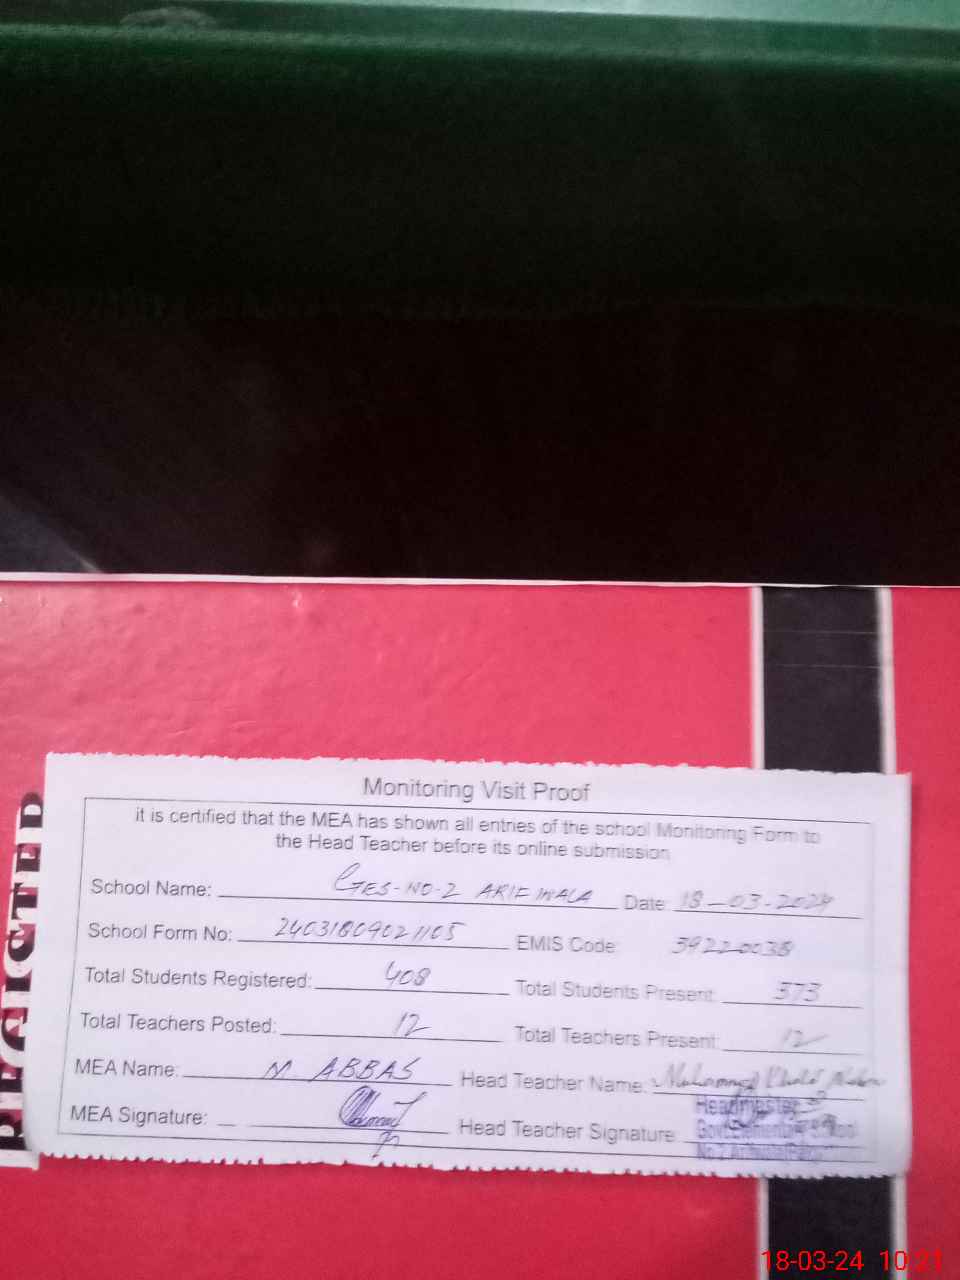 Monitoring Visit Proof
it is certified that the MEA has shown all entries of the school Monitoring Form to
the Head Teacher before its online submission
School Name: GES-NO-2 ARIFWALA Date: 18-03-2024
School Form No: 24031809021105 EMIS Code: 39220038
Total Students Registered: 408 Total Students Present: 373
Total Teachers Posted: 12 Total Teachers Present: 12
MEA Name: M ABBAS Head Teacher Name: Muhammad Khalid
MEA Signature: Head Teacher Signature
Headmaster
Govt. Elementary School
No.2 Arifwala
18-03-24 10:21